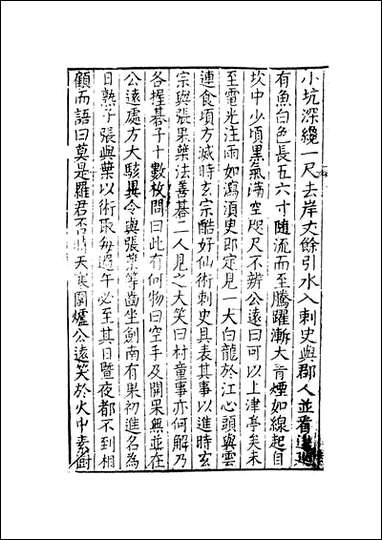 小坑深纔一尺去岸丈餘引水入刺史與郡人並看逡巡
有魚白色長五六寸随流而至騰躍漸大青煙如線起自
坎中少頃黑氣滿空咫尺不辨公遠曰可以上津亭矣未
至電光注雨如瀉湏臾即定見一大白龍於江心頭與雲
連食頃方滅時玄宗酷好仙術刺史具表其事以進時玄
宗與張果葉法善碁二人見之大笑曰村童事亦何解乃
各握碁子十數枚問曰此有何物曰空手及開果無並在
公遠處方大駭異令與張葉等齒坐劍南有果初進名為
日熟子張與葉以術取每過午必至其日暨夜都不到相
顧而語曰莫是羅君否時天寒圍爐公遠笑於火中素樹